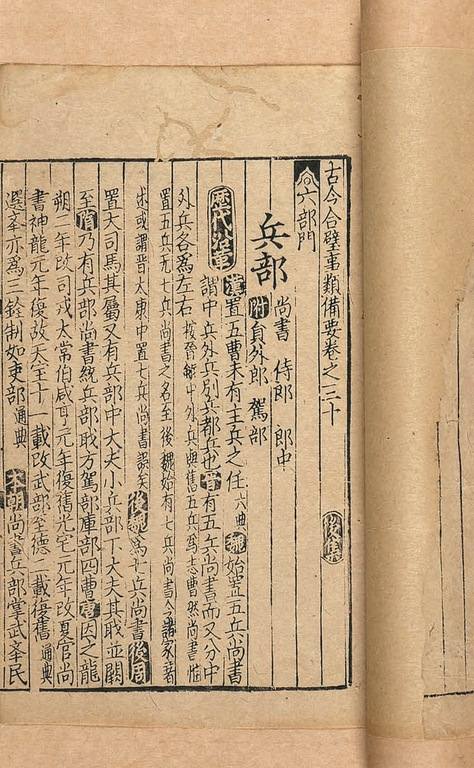 古今合璧事類備要卷之三十 後集
六部門
兵部 尚書 侍郎 郎中
附 員外郎 駕部
歷代沿革 漢置五曹未有主兵之任六典魏始置五兵尚書
謂中兵外兵別兵都兵也晉有五兵尚書而又分中
外兵各為左右
置五兵无七兵尚書之名至後魏始有七兵尚書今諸家著
述或謂晉太康中置七兵尚書誤矣後魏為七兵尚書後周
置大司馬其屬又有兵部中大夫小兵部下大夫其職並闕
至隋乃有兵部尚書統兵部職方駕部庫部四曹唐因之龍
朔二年改司戎太常伯咸亨元年復舊光宅元年改夏官尚
書神龍元年復故天宝十一載改武部至德二載復舊通典
選舉亦為三銓制如吏部通典 本朝尚書兵部掌武舉民